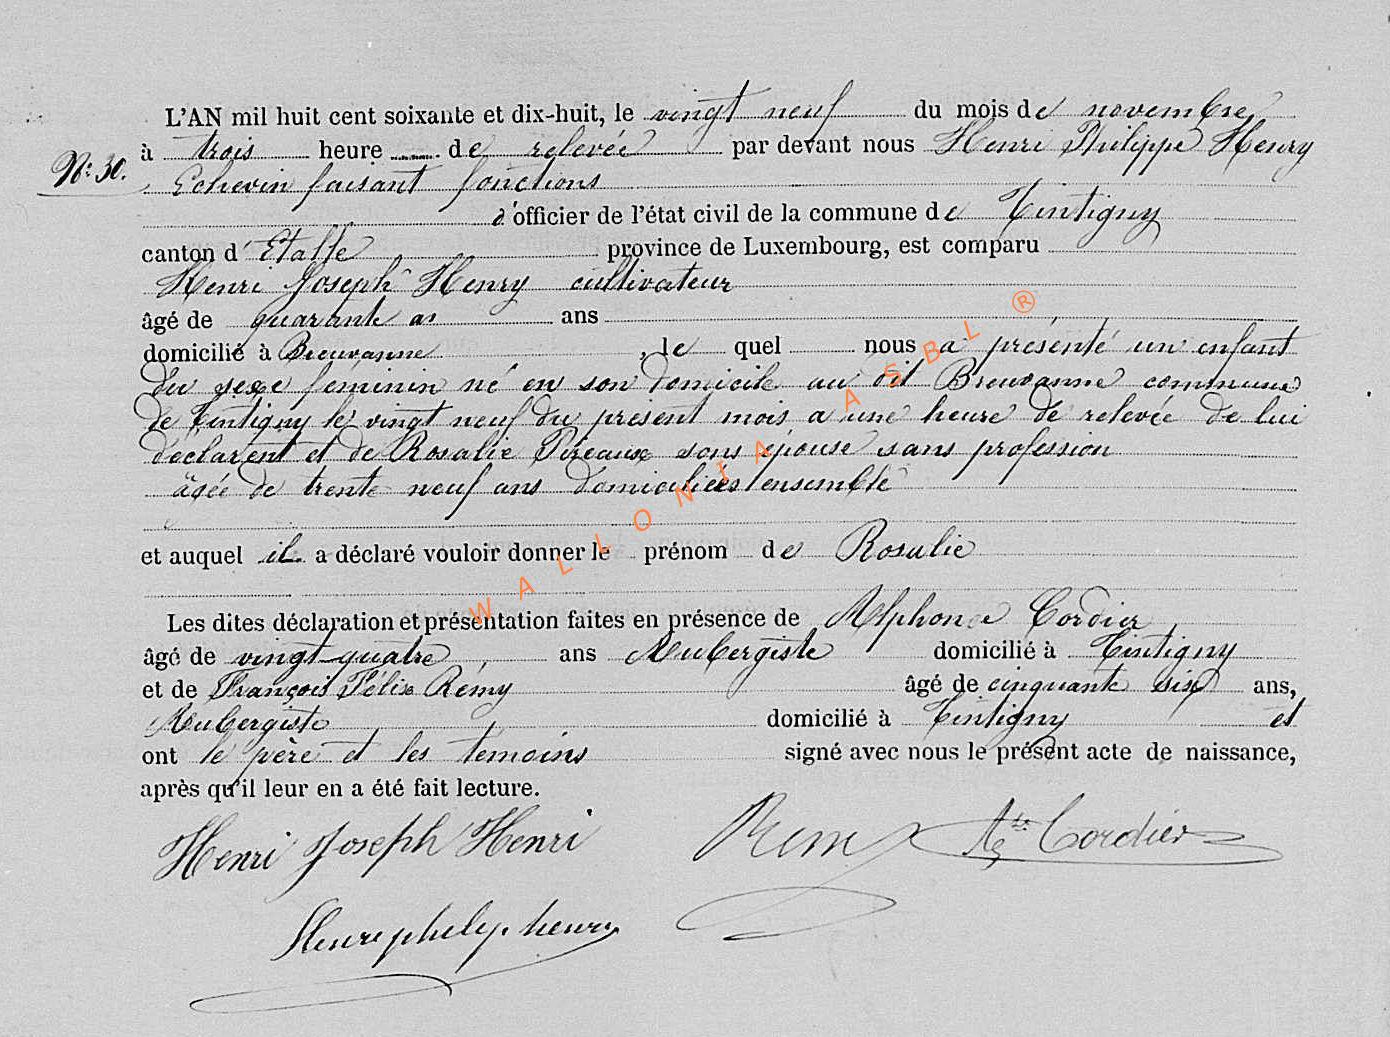 L'AN mil huit cent soixante et dix-huit, le vingt neuf du mois de novembre
Nº 30. à trois heure de relevée par devant nous Henri Philippe Henry
Echevin faisant fonctions
d'officier de l'état civil de la commune de Tintigny
canton d'Etalle province de Luxembourg, est comparu
Henri Joseph Henry cultivateur
âgé de quarante ans
domicilié à Breuvanne, le quel nous a présenté un enfant
du sexe féminin né en son domicile au dit Breuvanne commune
de Tintigny le vingt neuf du présent mois a une heure de relevée de lui
déclarent et de Rosalie Pireaux sons épouse sans profession
âgée de trente neuf ans domiciliées ensemble
et auquel il a déclaré vouloir donner le prénom de Rosalie
Les dites déclaration et présentation faites en présence de Alphonse Cordier
âgé de vingt-quatre ans Aubergiste domicilié à Tintigny
et de François Félix Rémy âgé de cinquante six ans,
Aubergiste domicilié à Tintigny et
ont le père et les temoins signé avec nous le présent acte de naissance,
après qu'il leur en a été fait lecture.
Henri Joseph Henri Remy Cordier
henry
WALLONIA ASBL ®